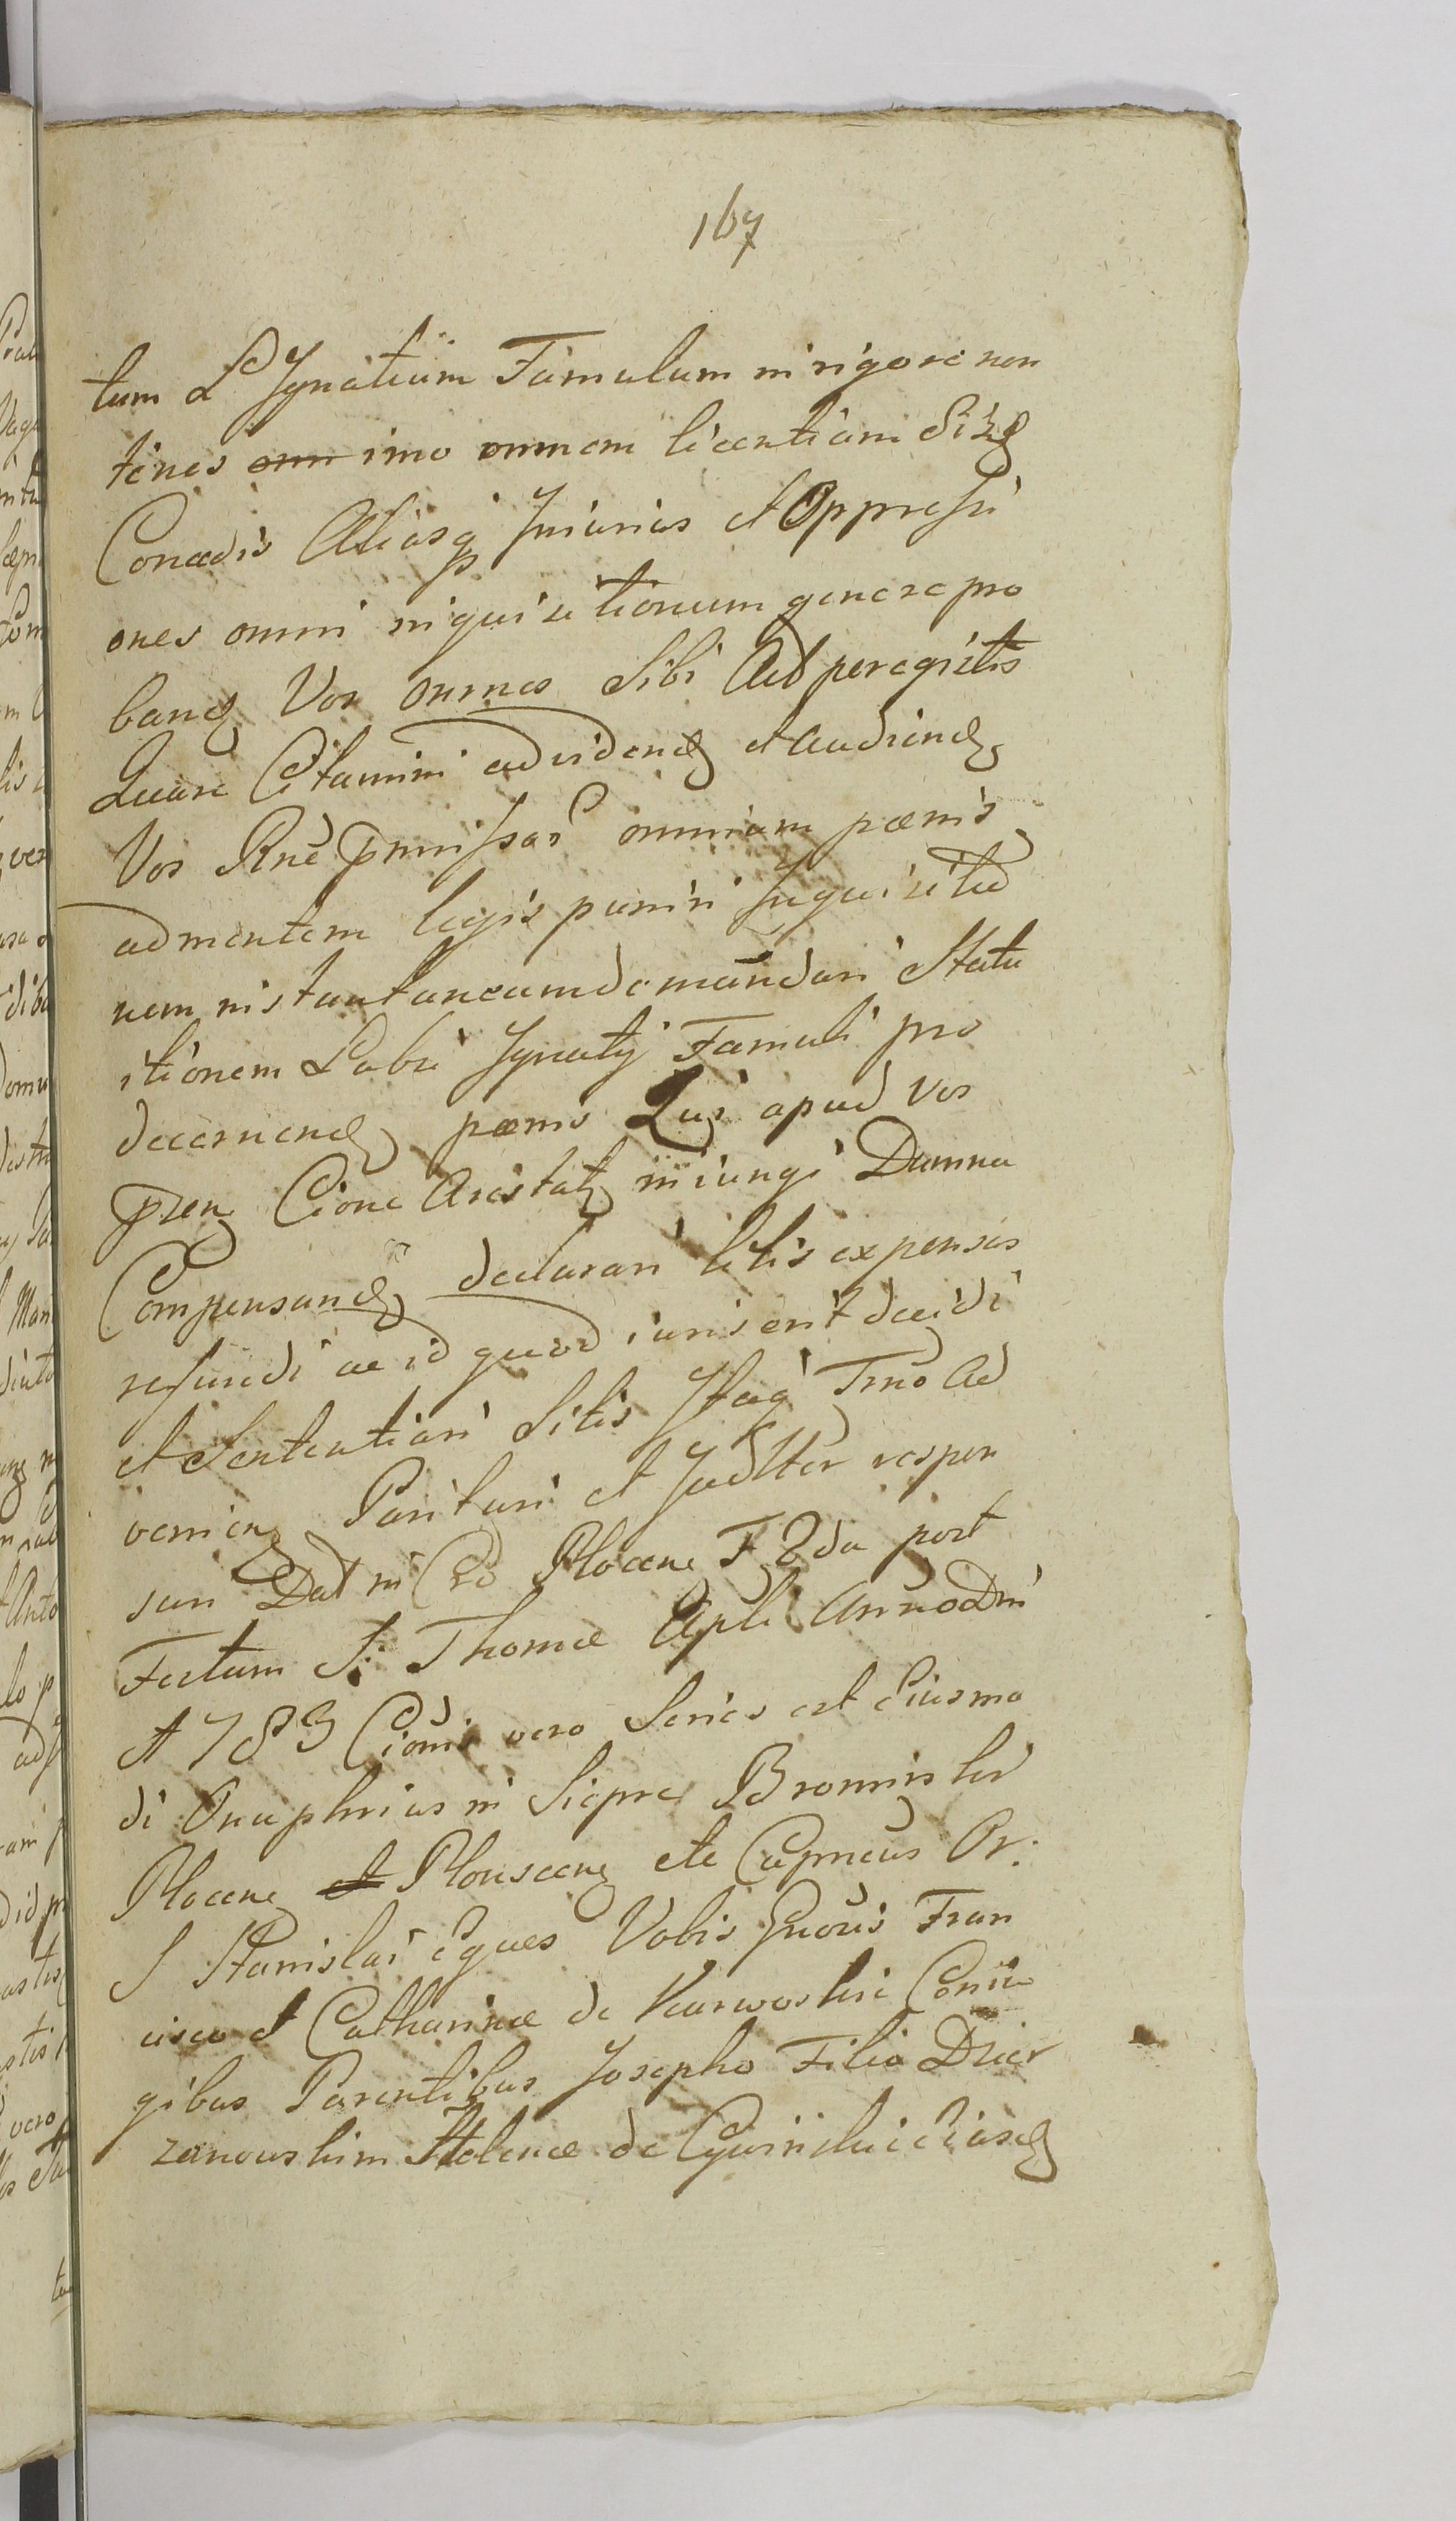 167
tum L Ignatium Famulum in rigore non
tenes omn imo omnem licentiam
Concedis Aliasq Iniurias et Oppressi
ones omni inquisitionum genere pro
band Vos omnes Sibi Ad peregistis
Quare Citamini ad vidend et audiend
Vos Rne pmissar omnium pœnis
ad mentem legis puniri Inquisitio
nem instantaneam demandari Statu
itionem Labri Ignatij Famuli pro
decernend pœnis Qui apud Vos
pren Cione Arestat iniungi Damna
Compensand declarari litis expensis
refundi ac id quod iuris erit decidi
et Sententiari Sitis Itaq Tmo Ad
venien Parituri et Judlter respon
suri Dat in C Plocen F 2da post
Festum S: Thomæ Apli Anno Dni
1783 Cionis vero Series est Eiusmo
di Onuphrius in Sieprc Bromirski
Plocen et Plonscen etc Capneus Or:
S Stanislai Eques Vobis Gnosis Fran
cisco et Catharinæ de Karwoskie Coniu
gibus Parentibus Josepho Filio Dzier
zanowskim Helenæ de